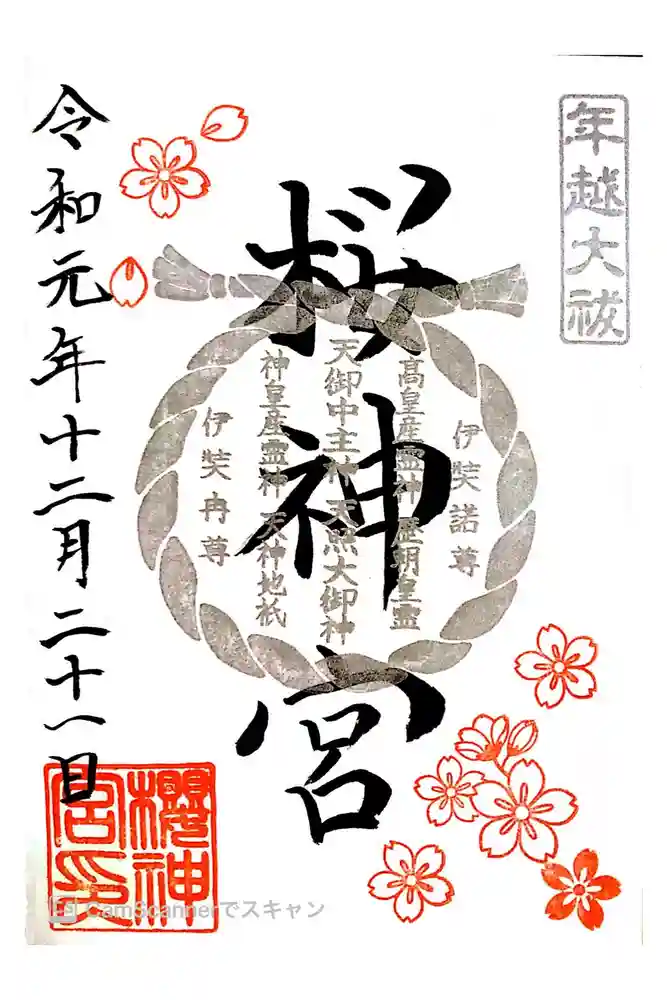 年越大祓
桜神宮
伊奘諾尊
高皇産霊神 歴朝皇霊
天御中主神 天照大御神
神皇産霊神 天神地祇
伊奘冉尊
令和元年十二月二十一日
櫻神宮印
CamScannerでスキャン